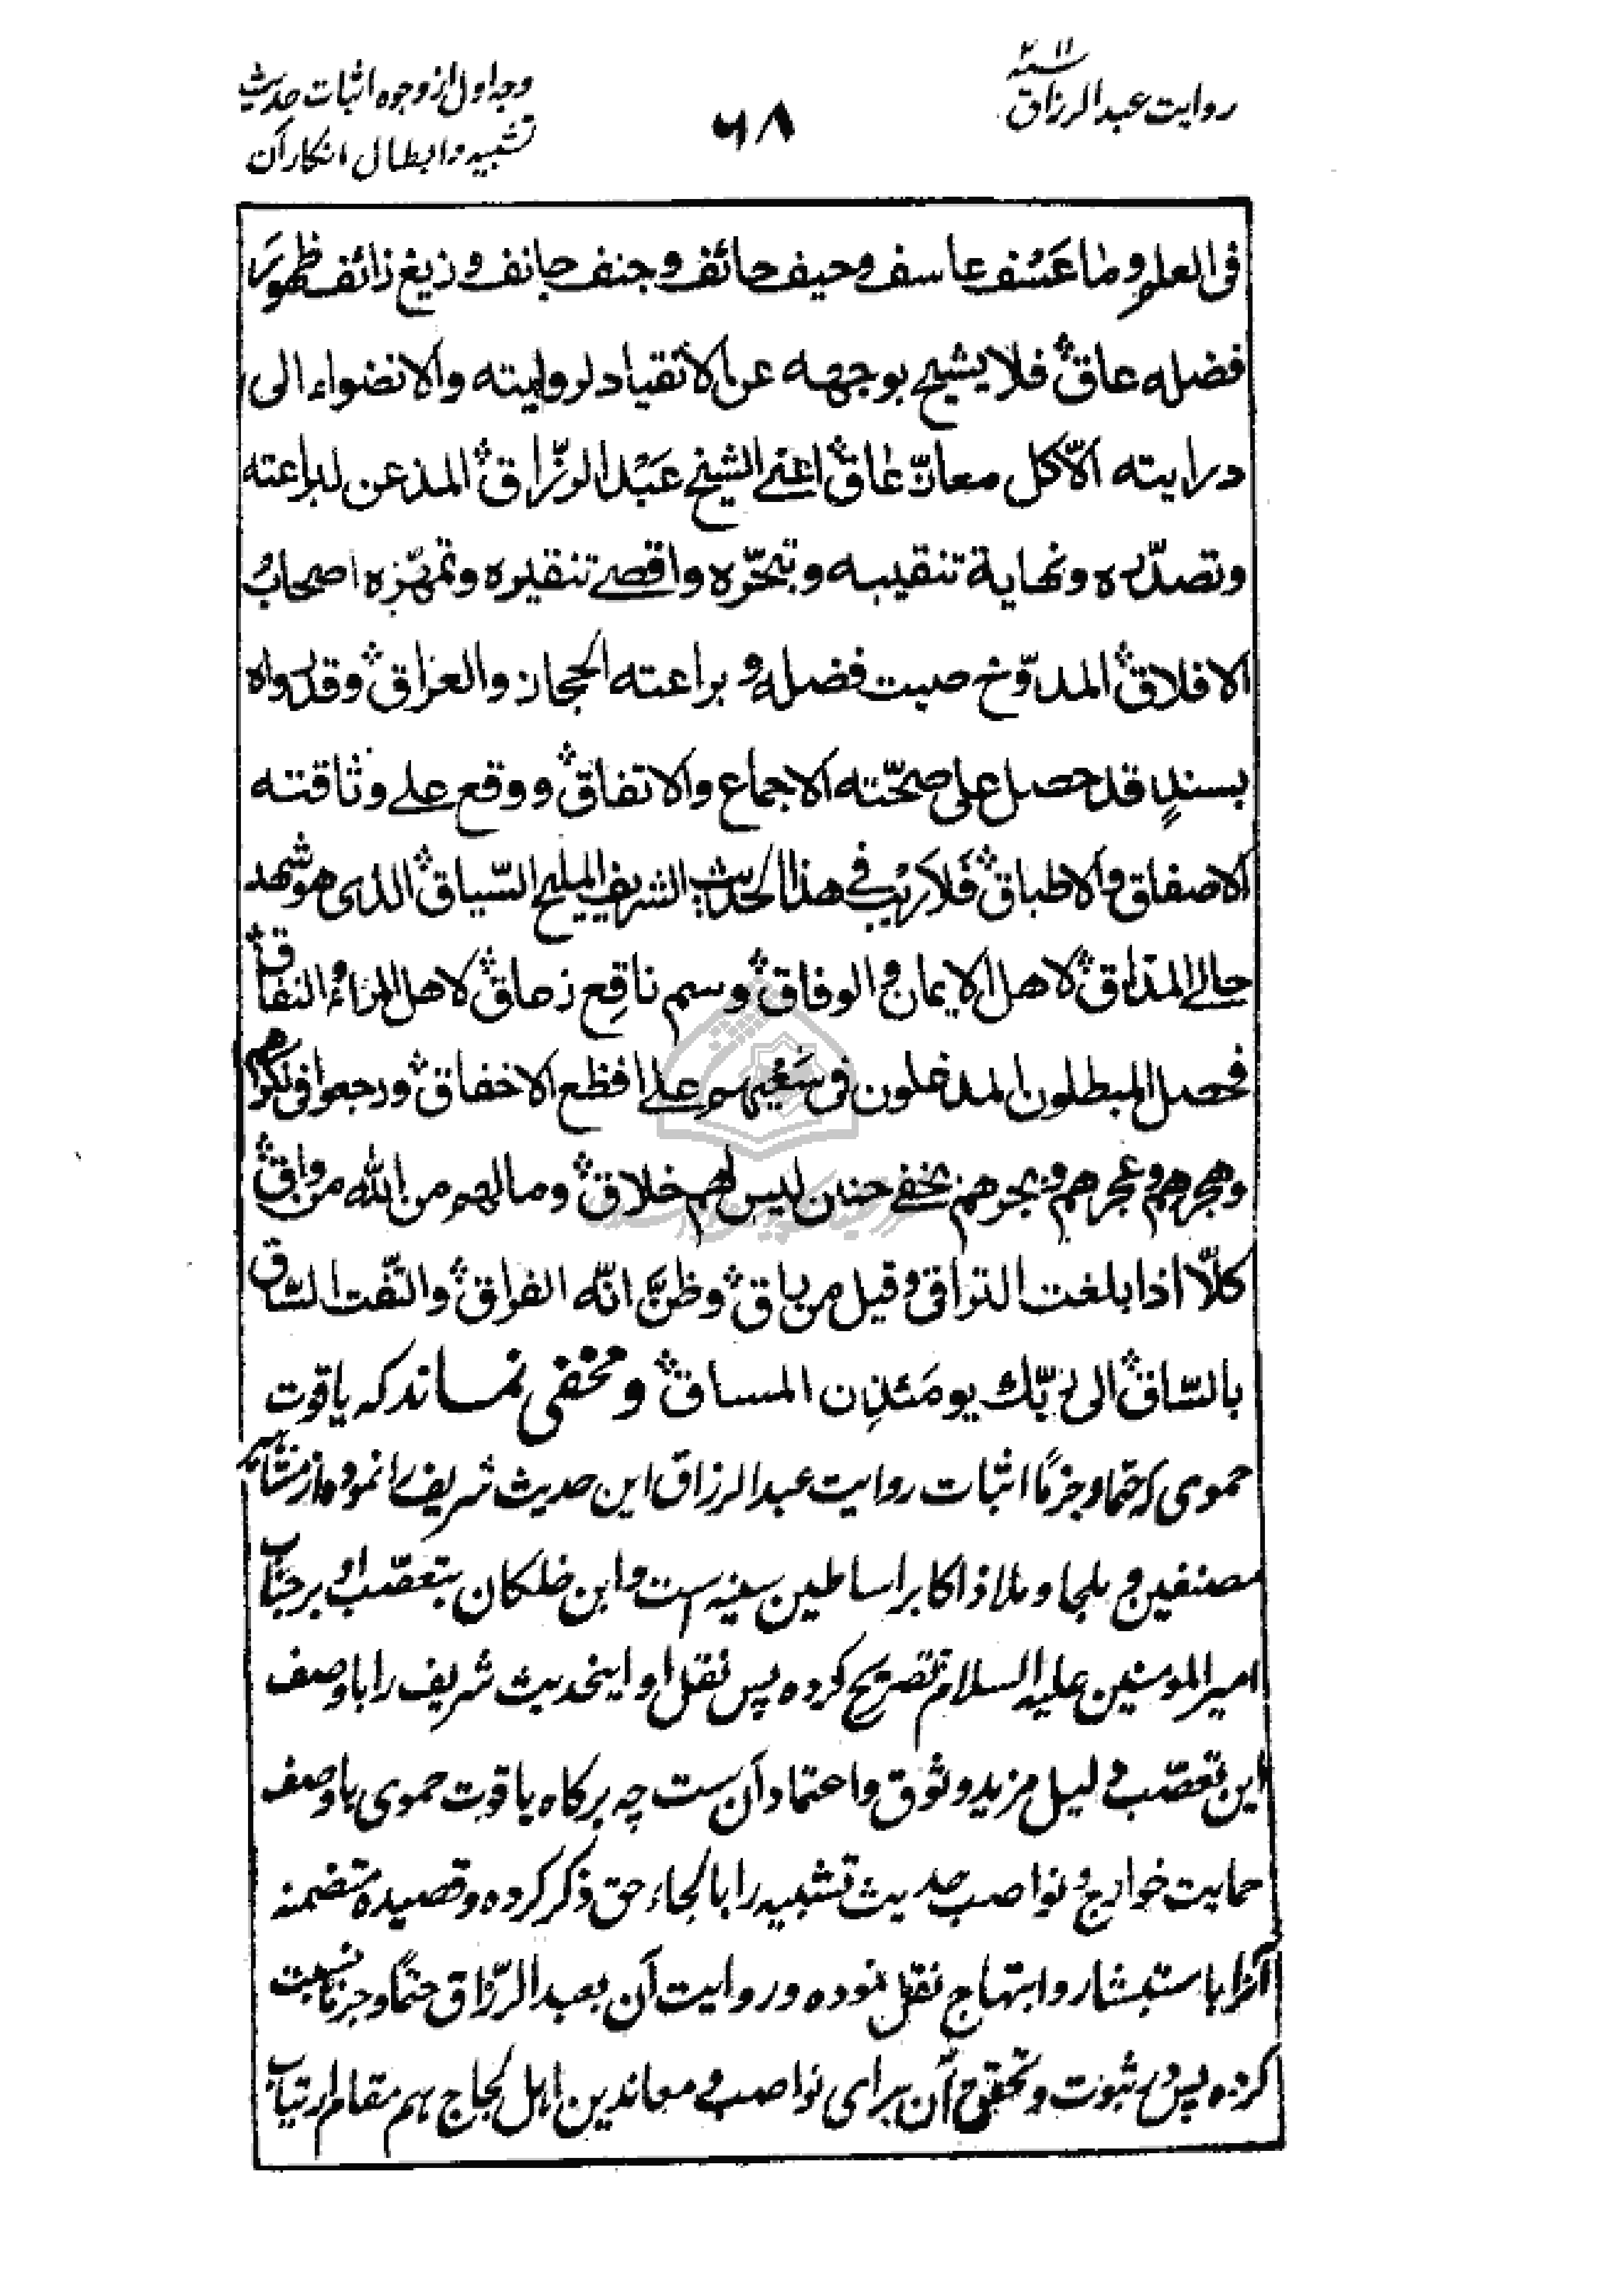 روایت عبد الرزاق سنه ۲۱۱
۶۸
وجه اول از وجوه اثبات حدیث
تشبیه و ابطال انکار آن
فی العلم و ما عَسْف عاسف و حیف حائف و جنف جانف و زیغ زائف ظهورَ
فضله عاق فلا یشیح بوجهه عن الانقیاد لروایته و الانضواء الی
درایته الّا کل معانّ عاق اعنی الشیخ عَبْد الرزّاق المذعن لبراعته
و تصدّره و نهایة تنقیبه و تبحّره و اقصی تنقیره و تمهّره اصحابُ
الافلاق المدوّخ صیت فضله و براعته الحجاز و العراق و قد رواه
بسندٍ قد حصل علی صحّته الاجماع و الاتفاق و وقع علی وثاقته
الاصفاق و الاطباق فلا رَیْب فی هذا الحدیث الشریف الملیح السّیاق الذی هو شهد
حالی المذاق لاهل الایمان و الوفاق و سم ناقِع زعاق لاهل المراء و النفاق
فحصل المبطلون المدغلون فی سَعْیهم علی افظع الاخفاق و رجعوا فی
و هجرهم و عجرهم و بجرهم بخفی حنین لیس لهم خلاق و ما لهم من الله من واق
کلّا اذا بلغت التراقی و قیل من راق و ظنَّ انّه الفراق و التّفت السّاق
بالسّاق الی ربّك یومَئذِن المساق و مخفی نماند که یاقوت
حموی که حتمًا و جزمًا اثبات روایت عبد الرزاق این حدیث شریف را نموده از مشاهیر
مصنفین و ملجا و ملاذ اکابر اساطین سنیه است و ابن خلکان بتعصّب او بر جناب
امیر المومنین علیه السلام تصریح کرده پس نقل او اینحدیث شریف را با وصف
این تعصّب دلیل مزید وثوق و اعتماد آن ست چه هر گاه یاقوت حموی با وصف
حمایت خوارج و نواصب حدیث تشبیه را بالجاء حق ذکر کرده و قصیده متضمنه
آنرا با استبشار و ابتهاج نقل نموده و روایت آن بعبد الرّزاق حتمًا و جزمًا نسبت
کرده پس در ثبوت و تحقق آن برای نواصب و معاندین اهل لجاج هم مقام ارتیاب